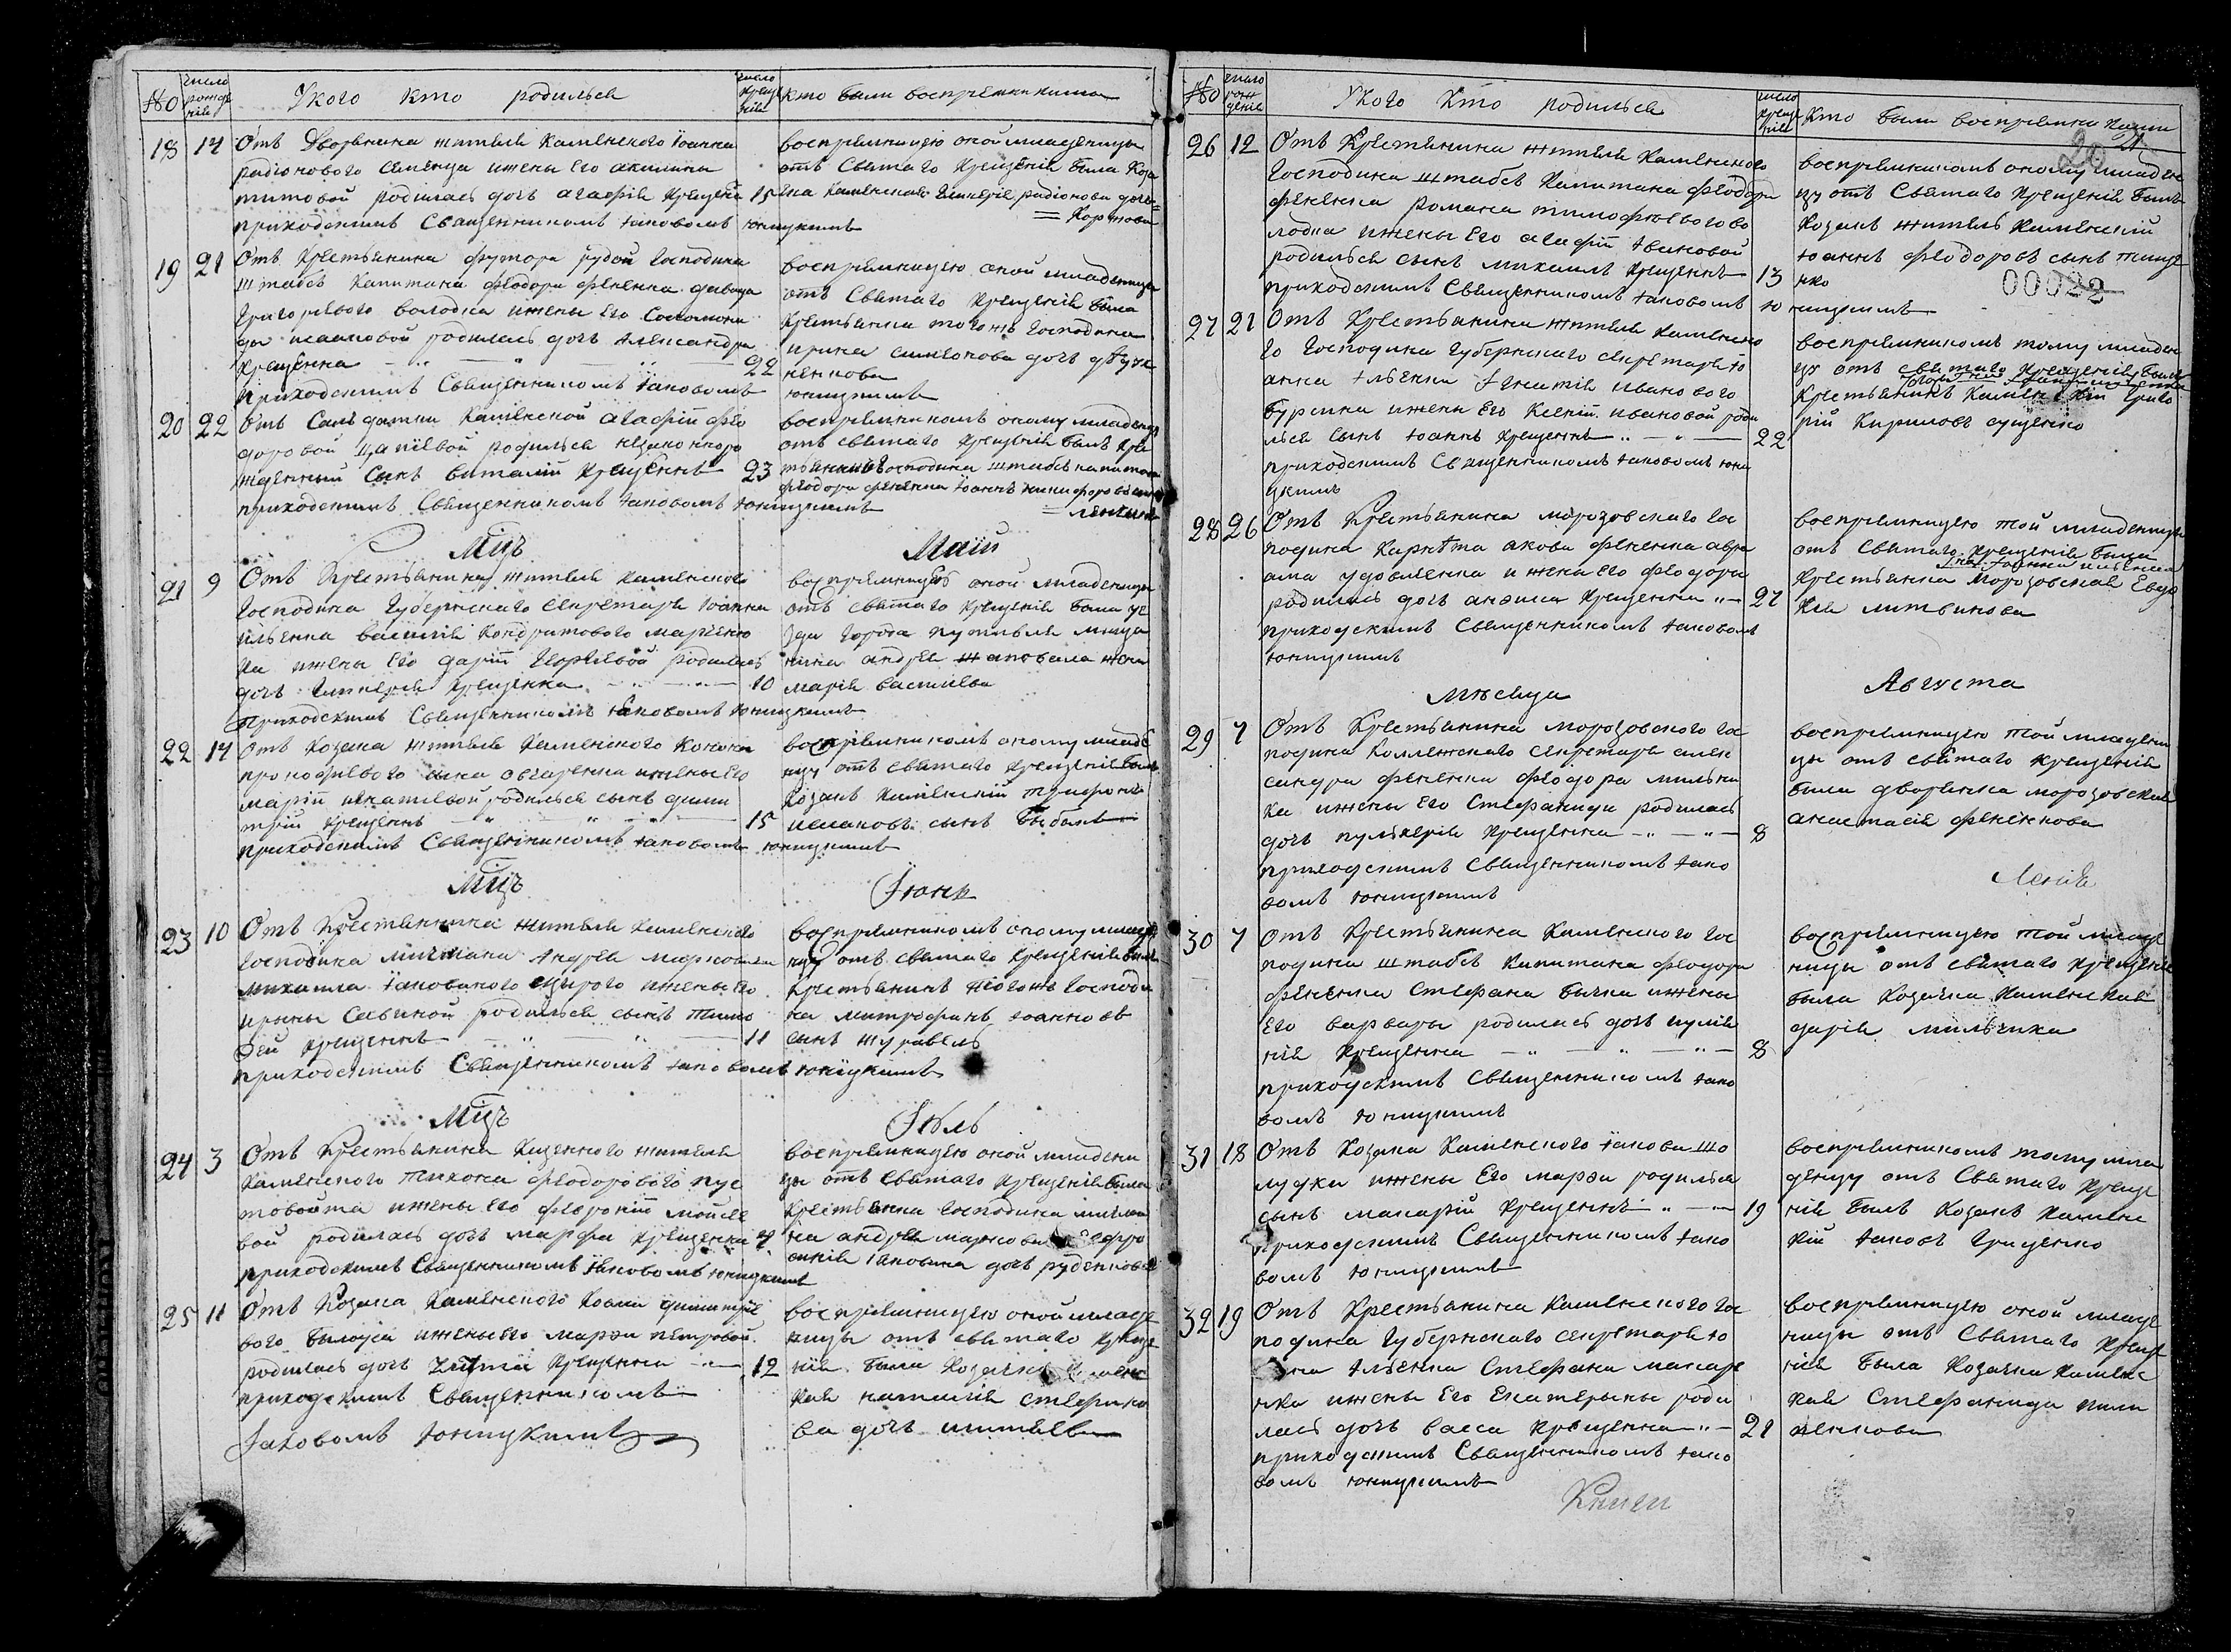 № число рождения У кого кто родился число крещения кто были восприемниками
18 14 Отъ Дворянина жителя Каменского Іоанна
радіонового Семенца и жены Его акилины
титовой родилась дочь агафія Крещена 15
приходскимъ Священникомъ Іаковомъ Юницкимъ
восприемницею оной младенцы
отъ Святаго Крещенія была Коза
чка Каменская Гликерія радіонова дочь
19 21 Отъ Крестьянина футора рудой Господина
штабсъ Капитана Феодора Фененка давида
Григорьевого володка и жены Его Соломони
ды исааковой родилась дочь Александра
Крещенна 22
приходскимъ Священникомъ Іаковомъ Юницкимъ
восприемницею оной младенцы
отъ Святаго Крещенія была
Крестьянка того же Господина
ирина симеонова дочь
20 22 Отъ Салдатки Каменской агафіи фео
доровой родился незаконноро
жденный Сынъ виталій Крещеннъ 23
приходскимъ Священникомъ Іаковомъ Юницкимъ
восприемникомъ оному младенцу
отъ святаго крещенія былъ кре
стьянинъ Господина штабсъ капитана
феодора фененка Іоаннъ никифоровъ
Мцъ Маій
21 9 Отъ Крестьянина жителя Каменского
Господина Губернскаго Секретаря Іоанна
Ильенка василія Кондратового марченко
ка и жены Его даріи Георгіевой родилась
дочь Гликерія Крещенна 10
приходскимъ Священникомъ Іаковомъ Юницкимъ
восприемницею оной младенцы
отъ святаго крещенія была уе
зда города путивля мещани
нина андрея шаповала жена
марія васильева
22 14 Отъ Козака жителя Каменского Конона
прокофіевого сына овчаренка и жены Его
маріи игнатіевой родился сынъ дими
трій Крещеннъ 15
приходскимъ Священникомъ Іаковомъ Юницкимъ
восприемникомъ оному младе
нцу отъ святаго крещенія былъ
Козакъ Каменскій Трифонъ
исааковъ сынъ
Мцъ Іюнь
23 10 Отъ Крестьянина жителя Каменского
Господина мичмана Андрея марковича
михаила Іаковлиного сѣрого и жены Его
ирыны Савиной родился сынъ Тимо
фей Крещеннъ 11
приходскимъ Священникомъ Іаковомъ Юницкимъ
восприемникомъ оному младе
нцу отъ святаго крещенія былъ
крестьянинъ того жъ Господи
на митрофанъ Іоанновъ
сынъ журавель
Мцъ Іюль
24 3 Отъ Крестьянина Казенного жителя
Каменского Тихона Феодорового пус
товойта и жены Его февроніи мойсее
вой родилась дочь марфа Крещенна 4
приходскимъ Священникомъ Іаковомъ Юницкимъ
восприемницею оной младени
цы отъ святаго крещенія была
Крестьянка Господина мичма
на андрея маркови Евфро
синія Іаковлина дочь руденкова
25 11 Отъ Козака Каменского Козмы димитріе
вого былоуса и жены Его марѳи петровой
родилась дочь Крещенна 12
приходскимъ Священникомъ
Іаковомъ Юницкимъ
восприемницею оной младе
ницы отъ святаго креще
нія была Козачка Каменс
кая наталія стефано
ва дочь
№ число рожденія У кого Кто родился число крещенія Кто были восприемниками
20
21
00022
26 12 Отъ Крестьянина жителя Каменского
Господина штабсъ Капитана Феодора
Фененка романа тимофѣевого во
лодка и жены Его агафіи Ивановой
родился сынъ михаилъ Крещеннъ 13
приходскимъ Священникомъ Іаковомъ Юницкимъ
восприемникомъ оному младен
цу отъ Святаго Крещенія былъ
Козакъ житель Каменскій
Іоаннъ феодоровъ сынъ тище
нко
27 21 Отъ Крестьянина жителя Каменско
го Господина Губернскаго секретаря Іо
анна Ильенка Игнатія Иванового
бурлика и жены Его Ксеніи ивановой роди
лся сынъ Іоаннъ Крещеннъ 22
приходскимъ Священникомъ Іаковомъ Юни
цкимъ
восприемникомъ тому младен
цу отъ святаго крещенія былъ
Крестьянинъ Каменскій Григо
рій Кириловъ сущенко
28 26 Отъ Крестьянина морозовского гос
подина Карнѣта акова фененка авра
ама удовиченка и жена Его феодора
родилась дочь анѳиса Крещенна 27
приходскимъ Священникомъ Іаковомъ
Юницкимъ
восприемницею той младенцы
отъ святаго крещенія была
Гна Іоанна ильенка
Крестьянка Морозовская Евдо
кія литвинова
мѣсяца Августа
29 7 Отъ Крестьянина морозовского гос
подина Коллежскаго секретаря алек
сандра фененка феодора мильчи
ка и жены Его Стефаниды родилась
дочь пульхерія Крещенна 8
приходскимъ Священникомъ Іако
вомъ Юницкимъ
восприемницею той младени
цы отъ святаго крещенія
была дворянка морозовская
анастасія фененкова
30 7 Отъ Крестьянина Каменского гос
подина штабсъ Капитана феодора
фененка Стефана бычка и жены
Его варвары родилась дочь пулхе
рія Крещенна 8
приходскимъ Священникомъ Іако
вомъ Юницкимъ
восприемницею той младе
ницы отъ святаго крещенія
была Козачка Каменская
дарія мильчика
31 18 Отъ Козака Каменского Іакова шо
лудка и жены Его марѳи родился
сынъ макарій Крещеннъ 19
приходскимъ Священникомъ Іако
вомъ Юницкимъ
восприемникомъ тому мла
денцу отъ Святаго Креще
нія былъ Козакъ Каменс
кій Іаковъ Грищенко
32 19 Отъ Крестьянина Каменского гос
подина Губернского секретаря Іо
анна Ильенка Стефана макаре
нка и жены Его Екатерыны роди
лась дочь васса Крещенна 21
приходскимъ Священникомъ Іако
вомъ Юницкимъ
восприемницею оной младе
ницы отъ Святаго Креще
нія была Козачка Каменс
кая Стефанида пили
пенкова